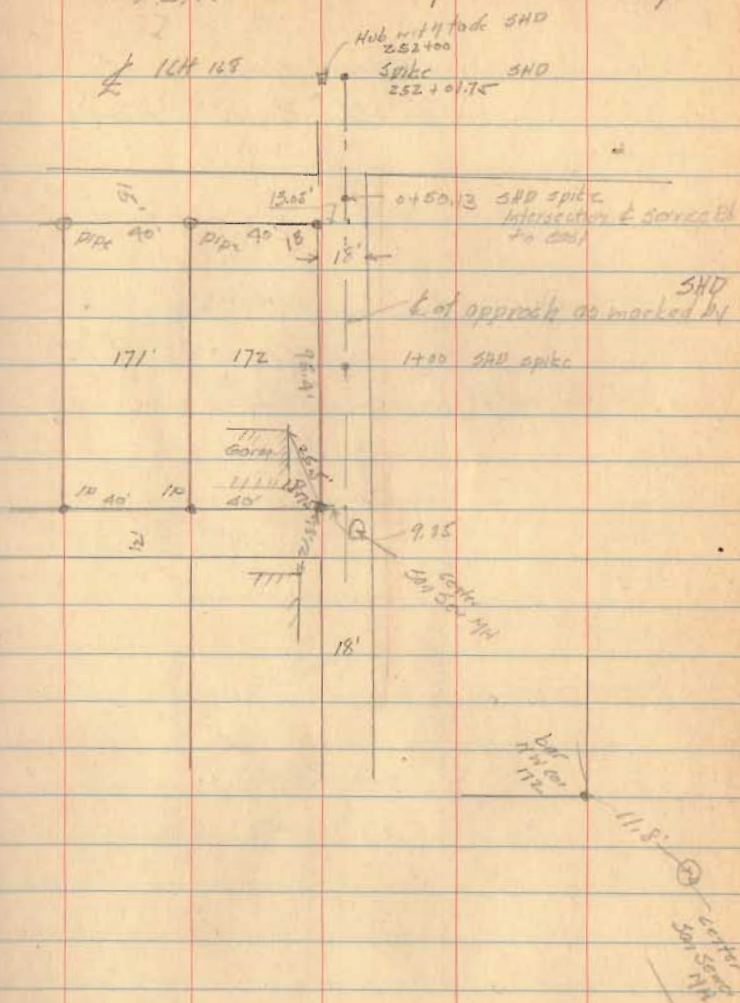 Hub with tack SHD
252+00
℄ ICH 168
Spike SHD
252 + 01.75
15'
13.05'
0+50.13 SHD spike
Intersection ℄ Service Rd
to east
pipe 40' pipe 40' 18
18'
SHD
℄ of approach as marked by
171' 172
95.4'
1+00 SHD spike
IP 40' IP 40'
9.85
center
San Sew MH
18'
bar
N W cor
172
11.8'
center
San Sewer
MH